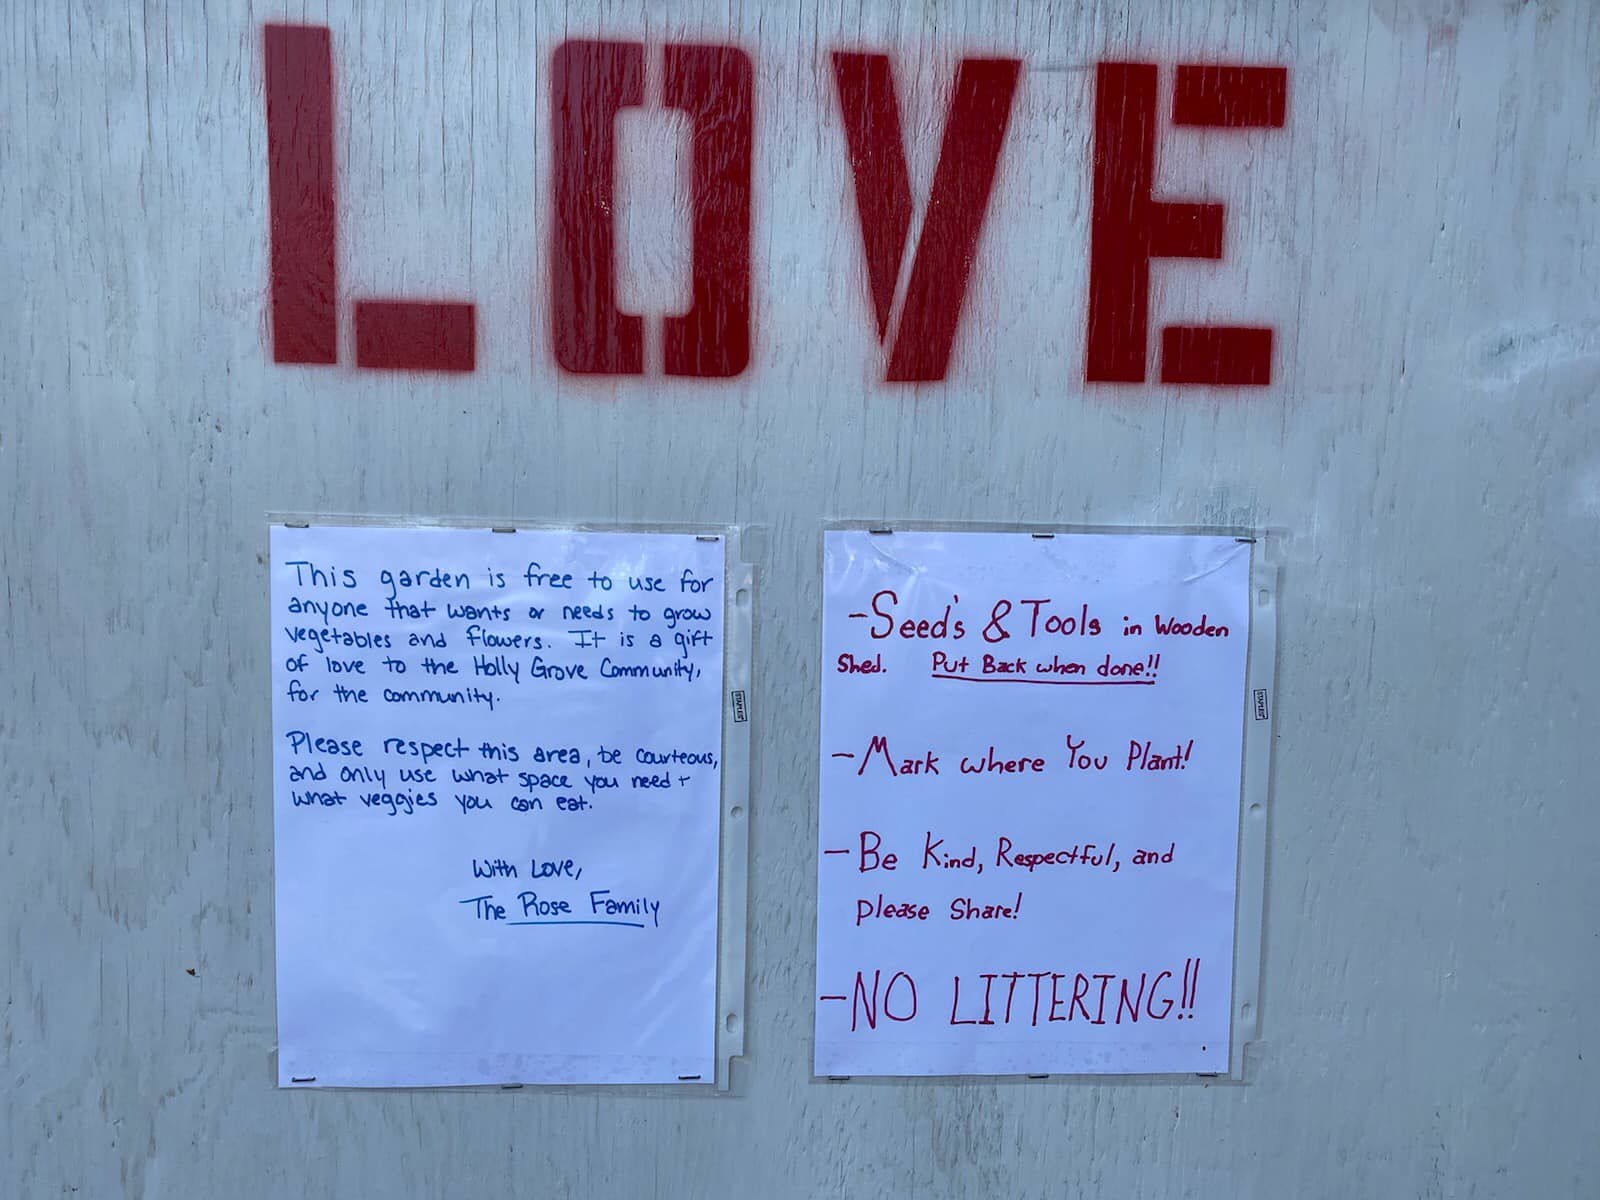 LOVE
This garden is free to use for
anyone that wants or needs to grow
vegetables and flowers. It is a gift
of love to the Holly Grove Community,
for the community.
Please respect this area, be courteous,
and only use what space you need +
what veggies you can eat.
With Love,
The Rose Family
-Seed's & Tools in Wooden
Shed. Put Back when done!!
-Mark where You Plant!
-Be Kind, Respectful, and
please Share!
-NO LITTERING!!
STAPLES
STAPLES